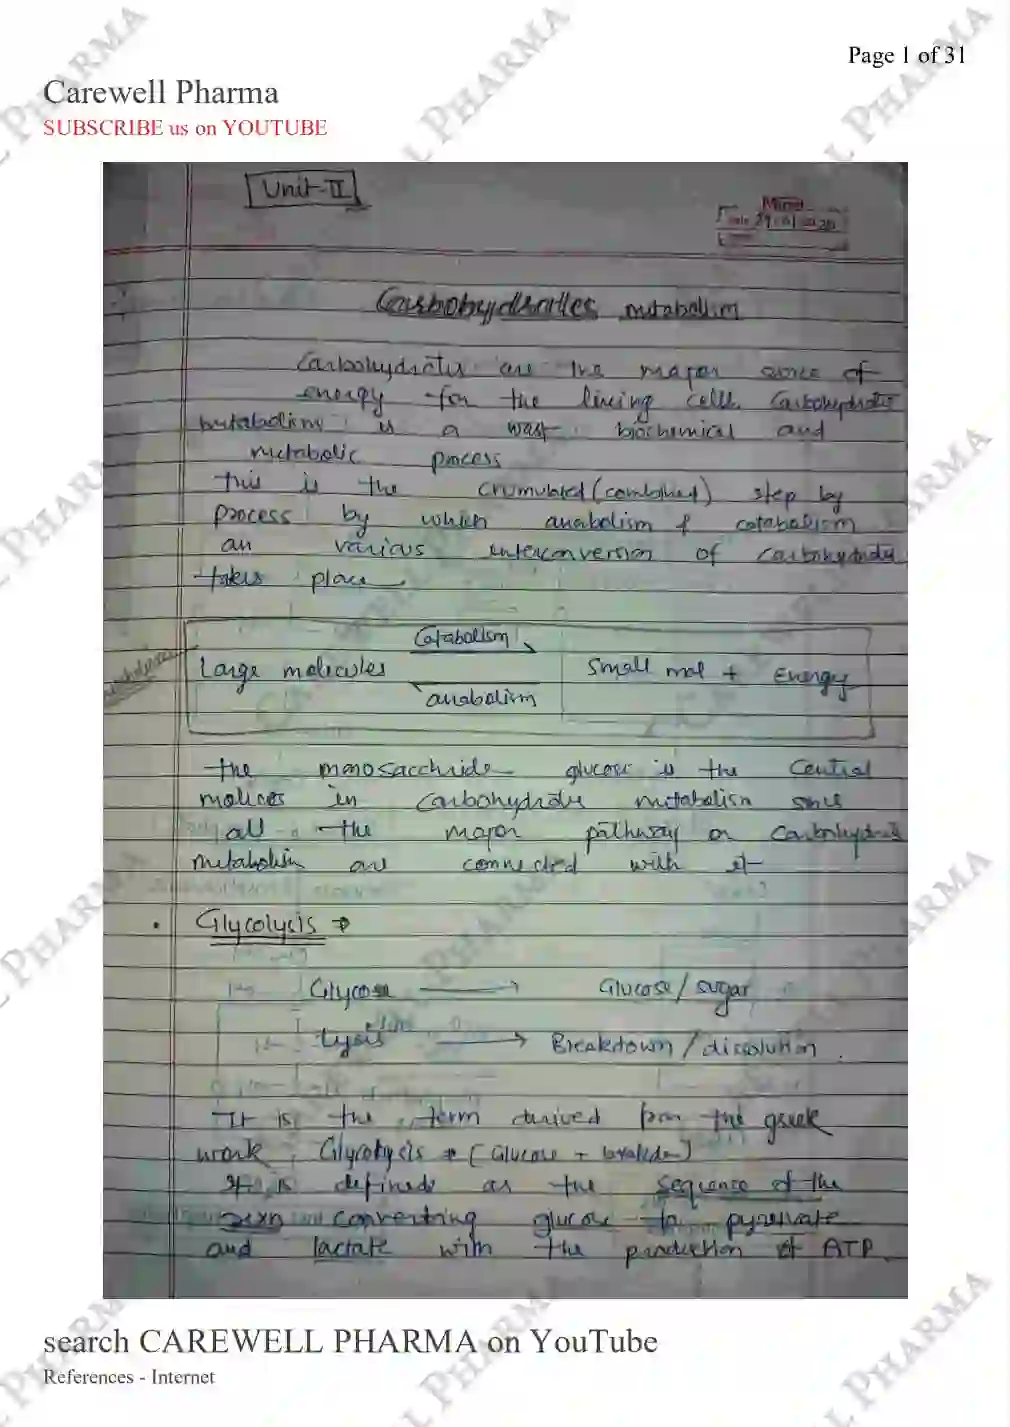 Page 1 of 31
Carewell Pharma
SUBSCRIBE us on YOUTUBE
Unit-II
Carbohydrates metabolism
Carbohydrates are the major source of
energy for the living cells. Carbohydrates
metabolism is a wast biochemical and
metabolic process
this is the (combined) step by
process by which anabolism & catabolism
an various interconversion of carbohydrate
takes place
Catabolism
Large molecules Small mol + Energy
anabolism
the monosacchride glucose is the central
molices in carbohydrate metabolism
all the major pathway on carbohydrate
metabolism are connected with it
• Glycolysis ⇒
Glycose → Glucose/sugar
Lysis → Breakdown/dissolution
It is the term derived from the greek
work, Glycolysis ⇒ (Glucose +
It is defined as the sequence of the
rexn converting glucose to pyruvate
and lactate with the production of ATP.
search CAREWELL PHARMA on YouTube
References - Internet